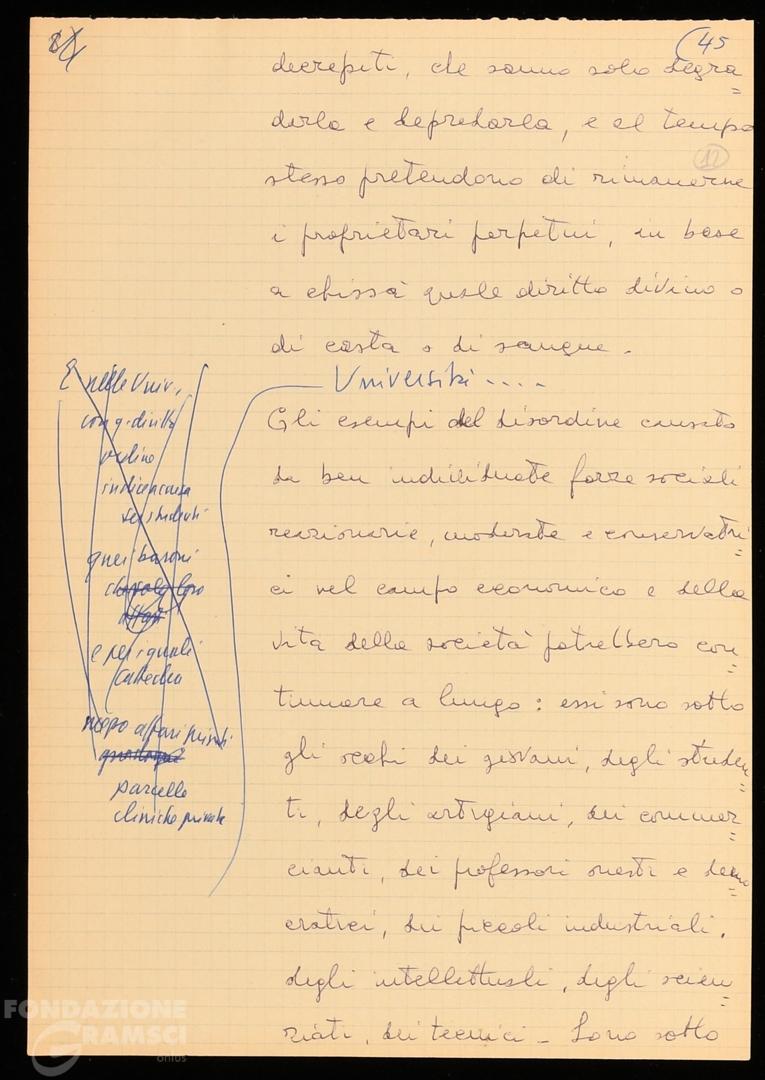 45
decrepiti, che sanno solo degra=
darla e depredarla, e al tempo
12
stesso pretendono di rimanerne
i proprietari perpetui, in base
a chissà quale diritto divino o
di casta o di sangue.
Università....
Gli esempi del disordine causato
da ben individuate forze sociali
reazionarie, moderate e conservatri=
ci nel campo economico e della
vita della società potrebbero con=
tinuare a lungo: essi sono sotto
gli occhi dei giovani, degli studen=
ti, degli artigiani, dei commer=
cianti, dei professori onesti e demo=
cratici, dei piccoli industriali,
degli intellettuali, degli scien=
ziati, dei tecnici - Sono sotto
E nelle Univ.,
con q. diritto
divino
studenti
quei baroni
e per i quali
cattedra
affari privati
parcelle
cliniche private
FONDAZIONE
GRAMSCI
onlus